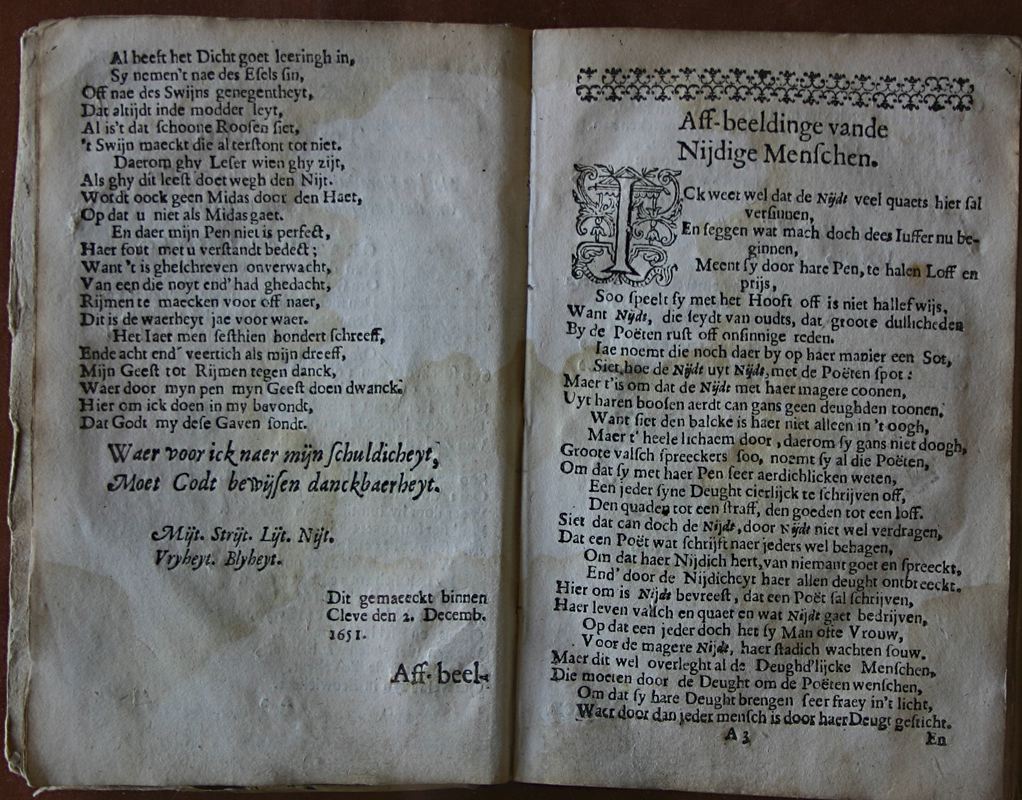 Al heeft het Dicht goet leeringh in,
Sy nemen't nae des Esels sin,
Off nae des Swijns genegentheyt,
Dat altijdt inde modder leyt,
Al is't dat schoone Roosen siet,
't Swijn maeckt die al terstont tot niet.
Daerom ghy Leser wien ghy zijt,
Als ghy dit leest doet wegh den Nijt.
Wordt oock geen Midas door den Haet,
Op dat u niet als Midas gaet.
En daer mijn Pen niet is perfect,
Haer fout met u verstandt bedect;
Want 't is gheschreven onverwacht,
Van een die noyt end' had ghedacht,
Rijmen te maecken voor off naer,
Dit is de waerheyt jae voor waer.
Het Iaer men sesthien hondert schreeff,
Ende acht end' veertich als mijn dreeff,
Mijn Geest tot Rijmen tegen danck,
Waer door myn pen myn Geest doen dwanck.
Hier om ick doen in my bavondt,
Dat Godt my dese Gaven sondt.
Waer voor ick naer mijn schuldicheyt,
Moet Godt bewijsen danckbaerheyt.
Mijt. Strijt. Lijt. Nijt.
Vryheyt. Blyheyt.
Dit gemaeckt binnen
Cleve den 2. Decemb.
1651.
Aff-beel-
Aff-beeldinge vande
Nijdige Menschen.
ICk weet wel dat de Nijdt veel quaets hier sal
versinnen,
En seggen wat mach doch dees Iuffer nu be-
ginnen,
Meent sy door hare Pen, te halen Loff en
prijs,
Soo speelt sy met het Hooft off is niet half wijs,
Want Nijdt, die seydt van oudts, dat groote dullicheden
By de Poëten rust off onsinnige reden.
Iae noemt die noch daer by op haer manier een Sot,
Siet hoe de Nijdt uyt Nijdt, met de Poëten spot:
Maer t'is om dat de Nijdt met haer magere coonen,
Uyt haren boosen aerdt can gans geen deughden toonen,
Want siet den balcke is haer niet alleen in 't oogh,
Maer t' heele lichaem door, daerom sy gans niet doogh,
Groote valsch spreeckers soo, noemt sy al die Poëten,
Om dat sy met haer Pen seer aerdichlicken weten,
Een jeder syne Deught cierlijck te schrijven off,
Den quaden tot een straff, den goeden tot een loff.
Siet dat can doch de Nijdt, door Nijdt niet wel verdragen,
Dat een Poët wat schrijft naer jeders wel behagen,
Om dat haer Nijdich hert, van niemant goet en spreeckt,
End' door de Nijdicheyt haer allen deught ontbreeckt.
Hier om is Nijdt bevreest, dat een Poët sal schrijven,
Haer leven valsch en quaet en wat Nijdt gaet bedrijven,
Op dat een jeder doch het sy Man ofte Vrouw,
Voor de magere Nijdt, haer stadich wachten souw.
Maer dit wel overleght al de Deughd'lijcke Menschen,
Die moeten door de Deught om de Poëten wenschen,
Om dat sy hare Deught brengen seer fraey in't licht,
Waer door dan jeder mensch is door haer Deugt gesticht.
A 3 En